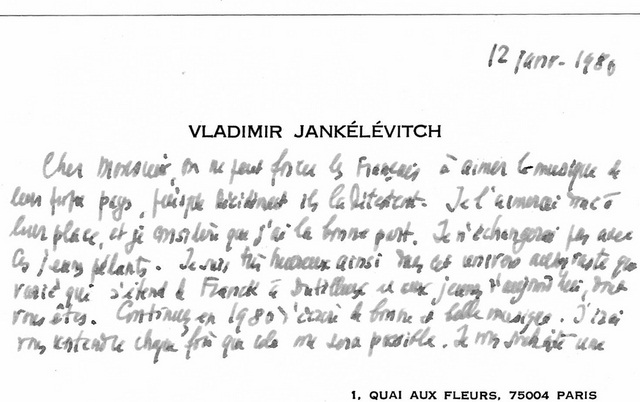 12 janv. 1980
VLADIMIR JANKÉLÉVITCH
Cher Monsieur, on ne peut forcer les Français à aimer la musique de
leur propre pays, puisque décidément ils la détestent. Je l'aimerai à
leur place, et je considère que j'ai la bonne part. Je n'échangerai pas avec
ces. Je suis très heureux ainsi dans cet univers aussi vaste que
varié qui s'étend de Franck à Dutilleux et aux jeunes d'aujourd'hui, dont
vous êtes. Continuez en 1980 d'écrire de bonnes et belles musiques. J'irai
vous entendre chaque fois que cela me sera possible. Je vous souhaite une
1, QUAI AUX FLEURS, 75004 PARIS